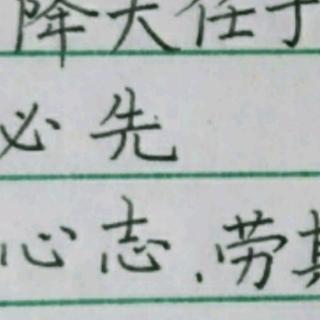 降大任于
必先
心志,劳其